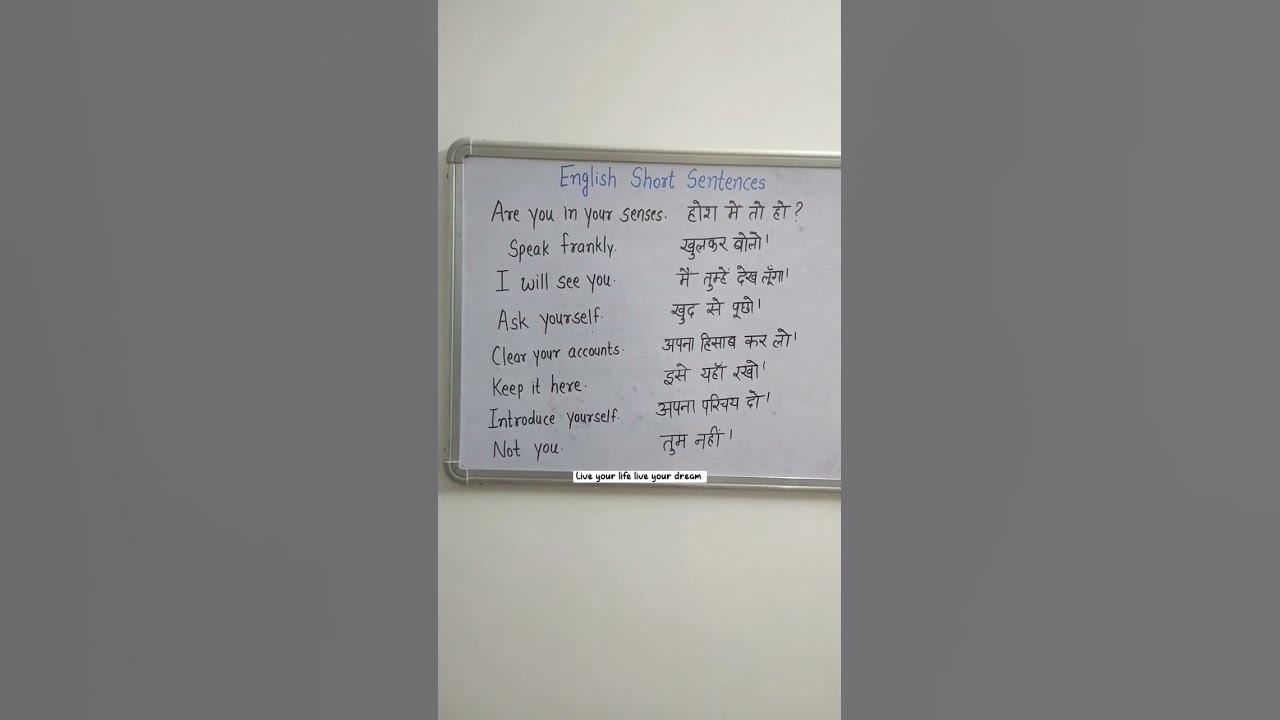 English Short Sentences
Are you in your senses. होश मे तो हो?
Speak frankly. खुलकर बोलो।
I will see you. मै तुम्हें देख लूँगा।
Ask yourself. खुद से पूछो।
Clear your accounts. अपना हिसाब कर लो।
Keep it here. इसे यहाँ रखो।
Introduce yourself. अपना परिचय दो।
Not you. तुम नहीं।
Live your life live your dream